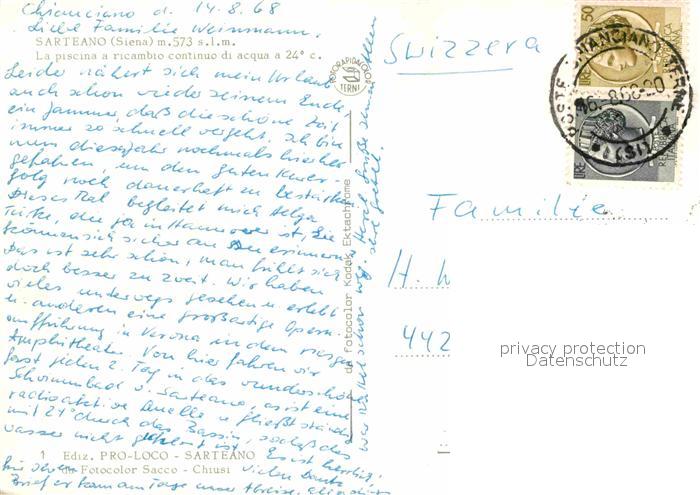 Chianciano d. 14.8.68
Liebe Familie Weinmann.
SARTEANO (Siena) m. 573 s.l.m.
La piscina a ricambio continuo di acqua a 24° c.
Leider nähert sich mein Urlaub
auch schon wieder seinem Ende,
ein Jammer, daß die schöne Zeit
immer so schnell vergeht. Ich bin
nun dieses Jahr nochmals hierher
gefahren, um den guten Kurer-
folg noch dauerhaft zu bestärken
Dieses Mal begleitet mich Helga
die ja in Hannover ist, Sie
können sich sicher an erinnern
Das ist sehr schön, man fühlt sich
doch besser zu zweit. Wir haben
vieles unterwegs gesehen u. erlebt
u. anderem eine großartige Opern-
aufführung in Verona in dem riesigen
Amphitheater. Von hier fahren wir
fast jeden 2. Tag in das wunderschöne
Schwimmbad v. Sarteano, es ist eine
radioaktive Quelle u. fließt ständig
mit 24° durch das Bassin, sodaß das
wasser nicht gechlort ist. Es ist herrlich,
1 Ediz. PRO-LOCO - SARTEANO
da Fotocolor Sacco - Chiusi
vielen Dank
Brief er kam am Tage unser Abreise
FOTORAPIDACOLOR
TERNI
da fotocolor Kodak Ektachrome
Svizzera
LIRE 50
REPUBBLICA ITALIANA
CHIANCIANO TERME
16.8.68-20
LIRE
REPUBBLICA ITALIANA
Familie
H. W
442
privacy protection
Datenschutz